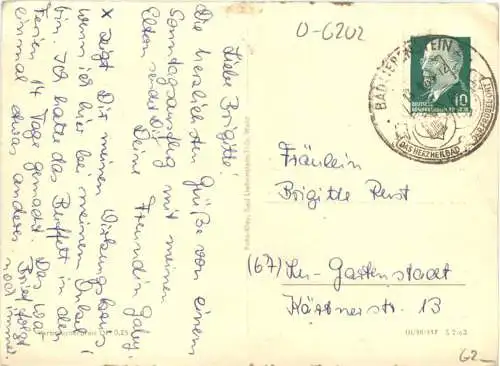 O-6202
Liebe Brigitte!
Die herzlichsten Grüße von einem
Sonntagsausflug mit meinen
Eltern sendet Dir
Deine Freundin Gaby.
X zeigt Dir meinen Wirkungskreis
wenn ich hier bei meinem Onkel
bin. Ich hatte das Buffett in den
Ferien 14 Tage gemacht. Das war
einmal etwas anderes. Brief folgt
noch immer.
BAD LIEBENSTEIN
DAS HERZHEILBAD
DEUTSCHE
DEMOKRATISCHE REPUBLIK
10
Fräulein
Brigitte
(67) Lu-Gartenstadt
Kärtnerstr. 13
62-